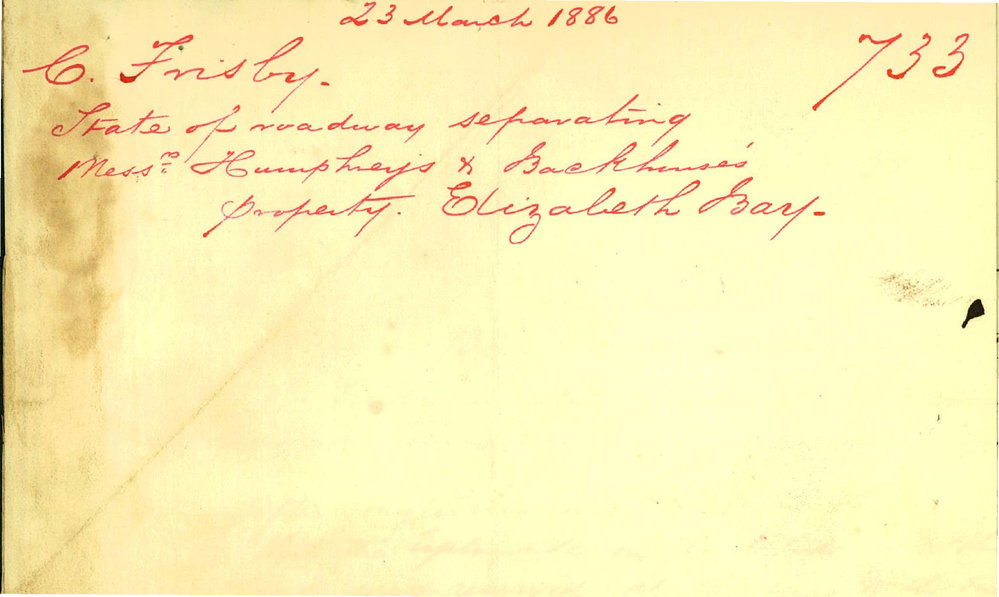 23 March 1886
733
C. Frisby.
State of roadway separating
Messrs. Humphreys & Backhouse's
property. Elizabeth Bay.